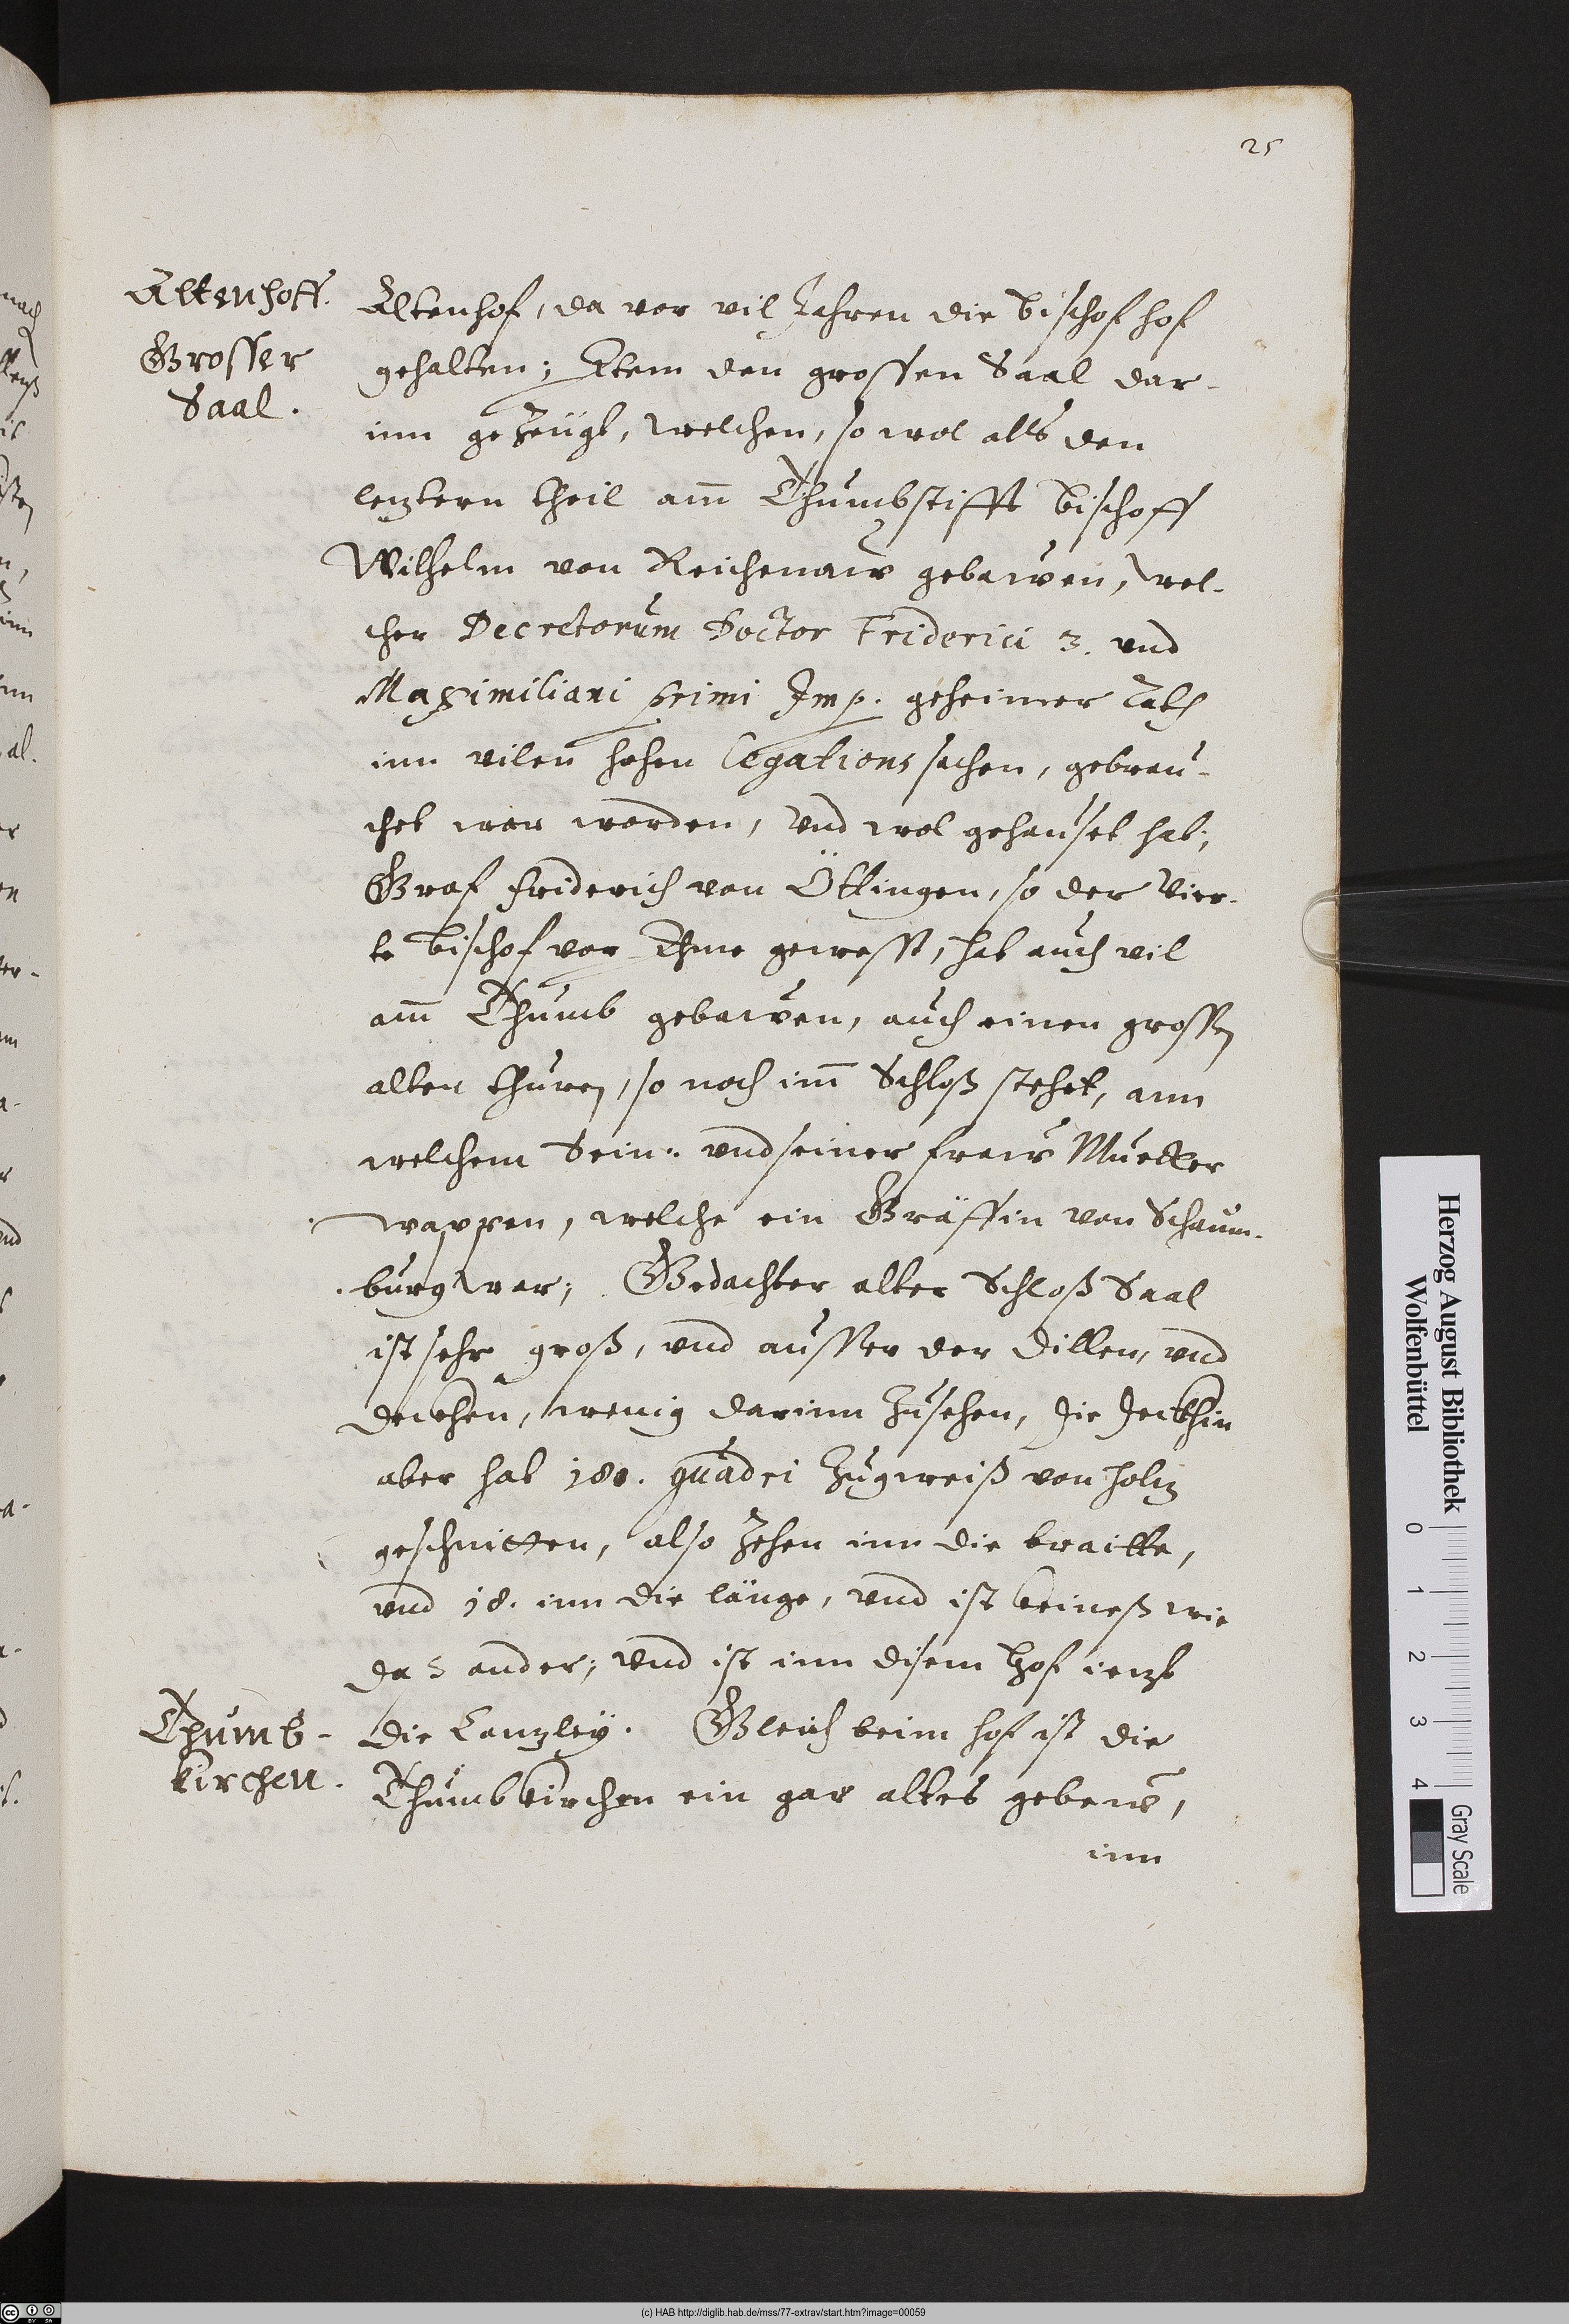 25
Altenhoff.
Grosser
Saal.
Altenhof, da vor vil Jahren die bischof hof
gehalten; Item den grossen Saal dar-
inn gezeügt, welchen, so wol alls den
letztern theil am̄ Thumbstifft bischoff
Wilhelm von Reichenaw gebawen, wel-
cher Decretorum Doctor Friderici 3. und
Maximiliani primi Imp. geheimer Rath
inn vilen hohen legations sachen, gebrau-
chet war worden, vnd wol gehauset hat;
Graf friderich von Öttingen, so der vier-
te bischof vor Ihme gewesst, hat auch vil
am̄ Thumb gebawen, auch einen grossen
alten thuren, so noch im̄ Schloß stehet, ann
welchem Sein: vnd seiner fraw Muetter
wappen, welche ein Gräffin von Schaum-
burg war; Gedachter alter Schloß Saal
ist sehr groß, vnd ausser der dillen, vnd
deckhen, wenig darinn zusehen, die deckhin
aber hat 180. quadri zugweiß von holtz
geschnitten, also zehen inn die braitte,
vnd 18. inn die länge, vnd ist keineß wie
das ander; vnd ist inn disem hof ietzt
Thumb-
kirchen.
die Cantzley. Gleich beim hof ist die
Thumbkirchen ein gar altes gebew,
inn
Herzog August Bibliothek
Wolfenbüttel
0 1 2 3 4
Gray Scale
(c) HAB http://diglib.hab.de/mss/77-extrav/start.htm?image=00059